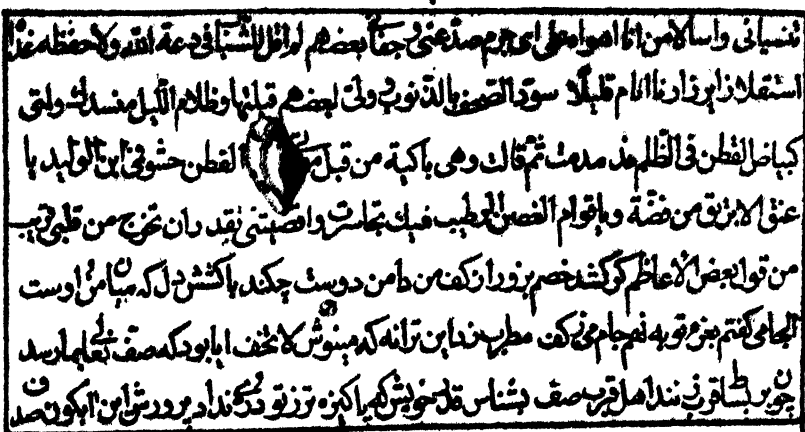 تنسیانی واسالا من انا اهواه علی ای جرم صدّ عنی و جفا بعضهم لم اقل للشباب فی دعة اللّه ولا حفظه غداة
استقلا زایر زارنا اقام قلیلًا سوّد الصّحف بالذّنوب و ولّی لبعضهم قبلتها وظلام اللّیل منسدل ولمّتی
کبیاض القطن فی الظّلم مدمت ثمّ قالت وهی باکیة من قبل القطن حشو فی ابن الولید یا
عنق الابریق من فضّة ویا قوام الغصن الرطیب تجاسرت تقدر ان تخرج من قلبی
من قول بعض الاعاظم کو کشد خصم بزور از کف من دامن دوست چکند با کشش دل که میان من و اوست
الجامی گفتم بعزم توبه نهم جام می ز کف مطرب زد این ترانه که مینوش لا تخف ایا بود که صف نعلیم رسد
چون بر بساط قرب زنند اهل قرب صف بشناس قدر خویش که پاکیزه تر ز تو درّی نداد پرورش این آبگون صدف